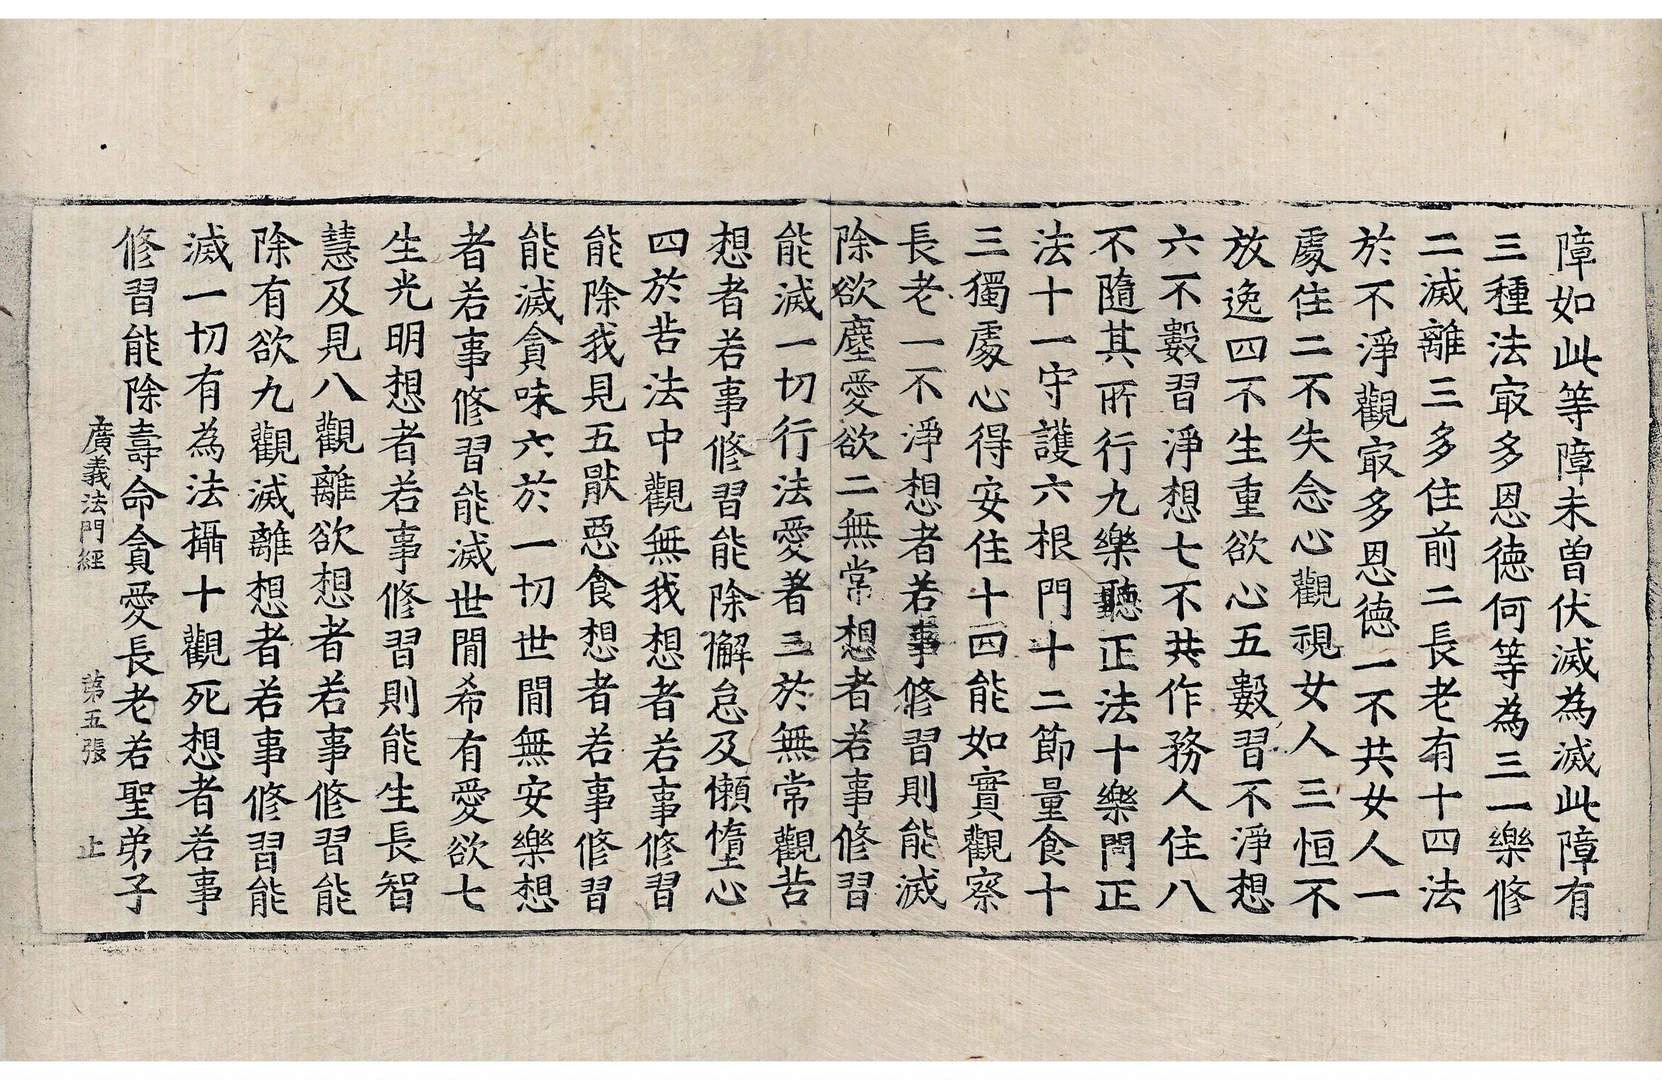 障如此等障未曽伏滅為滅此障有
三種法㝡多恩德何等為三一樂修
二滅離三多住前二長老有十四法
於不淨觀㝡多恩德一不共女人一
處住二不失念心觀視女人三恒不
放逸四不生重欲心五數習不淨想
六不數習淨想七不共作務人住八
不隨其所行九樂聽正法十樂問正
法十一守護六根門十二節量食十
三獨處心得安住十四能如實觀察
長老一不淨想者若事修習則能滅
除欲塵愛欲二無常想者若事修習
能滅一切行法愛著三於無常觀苦
想者若事修習能除懈怠及懶惰心
四於苦法中觀無我想者若事修習
能除我見五猒惡食想者若事修習
能滅貪味六於一切世間無安樂想
者若事修習能滅世間希有愛欲七
生光明想者若事修習則能生長智
慧及見八觀離欲想者若事修習能
除有欲九觀滅離想者若事修習能
滅一切有為法攝十觀死想者若事
修習能除壽命貪愛長老若聖弟子
廣義法門經 第五張 止